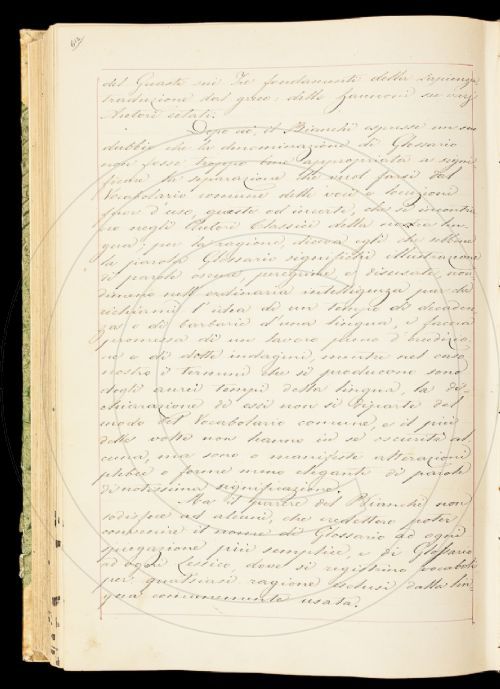 62
del Guasti sui Tre fondamenti della sapienza
traduzione dal greco; dello Zannoni su varj
Autori citati.
Dopo ciò, il Bianchi espresse un suo
dubbio che la denominazione di Glossario
non fosse troppo bene appropriata a signi
ficare la separazione che vuol farsi dal
Vocabolario comune delle voci e locuzioni
fuor d'uso, guaste od incerte, che si incontra
no negli Autori Classici della nostra lin
gua; per la ragione diceva egli che sebbene
la parola Glossario significhi illustrazione
di parole oscure, peregrine, e disusate, non
dimeno nell'ordinaria intelligenza par che
richiami l'idea di un tempo di decaden
za o di barbarie d'una lingua, e faccia
promessa di un lavoro pieno d'erudizio
ne e di dotte indagini, mentre nel caso
nostro i termini che si producono sono
degli aurei tempi della lingua, la di-
chiarazione di essi non si diparte dal
modo del Vocabolario comune, e il più
delle volte non hanno in se oscurità al
cuna, ma sono o manifeste alterazioni
plebee o forme meno eleganti di parole
di notissima significazione.
Ma il parere del Bianchi non
sodisfece ad alcuni, che credettero poter
convenire il nome di Glossario ad ogni
spiegazione più semplice, e di Glossario
ad ogni Lessico, dove si registrino vocaboli
per qualsiasi ragione esclusi dalla lin-
gua comunemente usata.